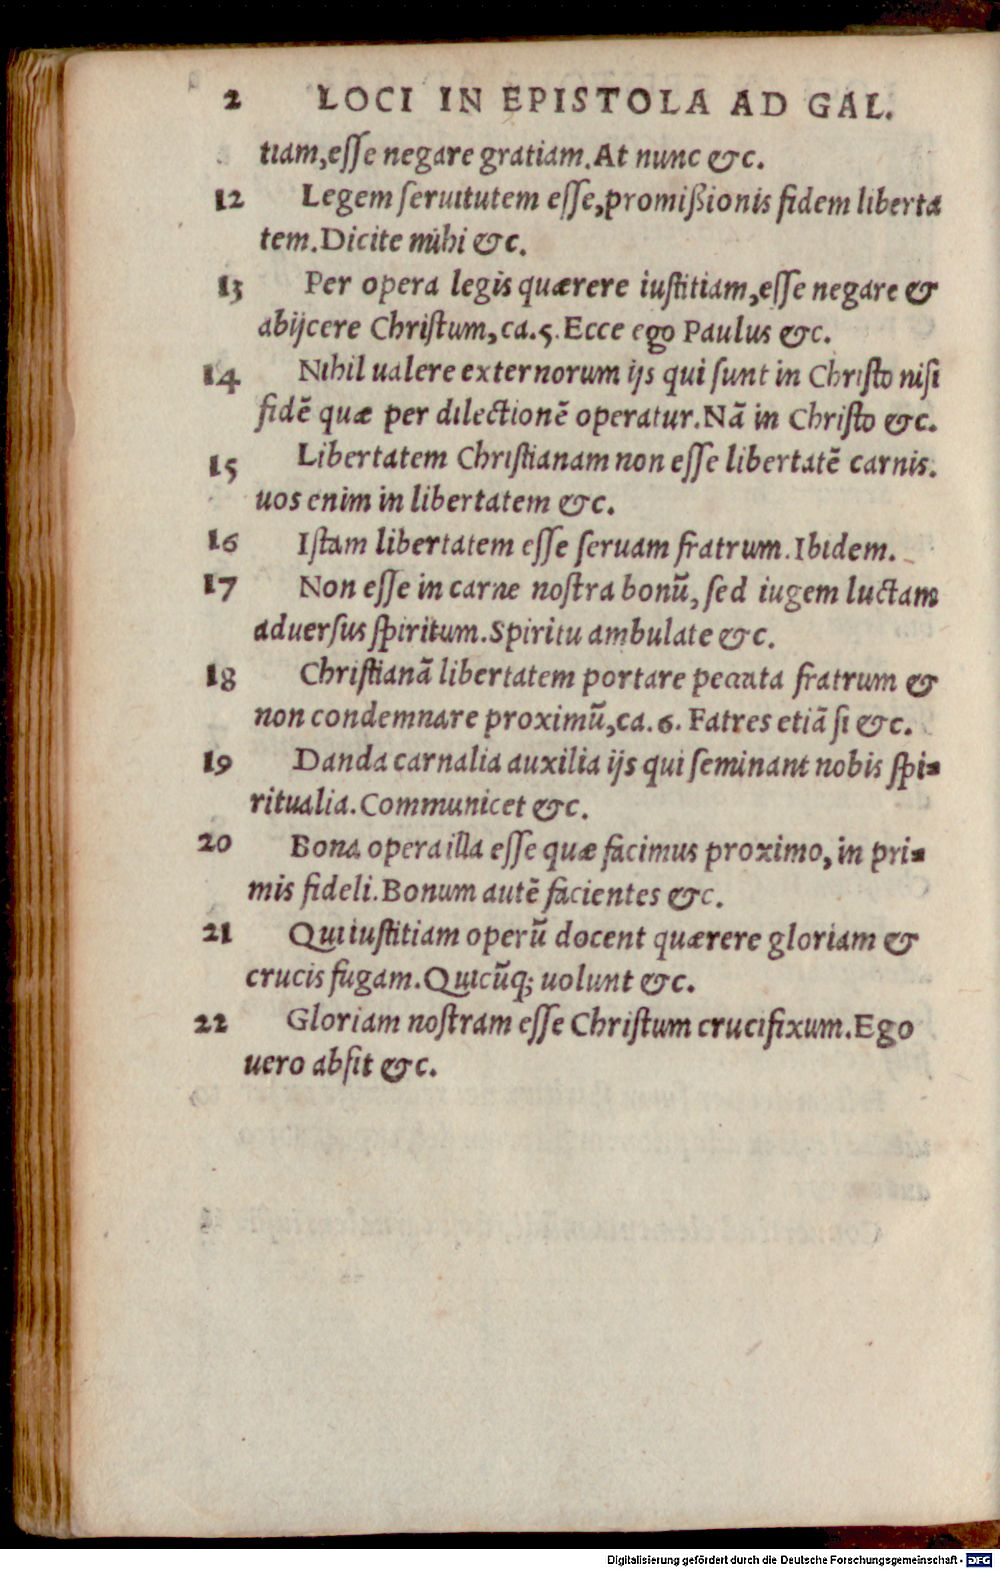 2 LOCI IN EPISTOLA AD GAL.
tiam,eſſe negare gratiam.At nunc &c.
12 Legem ſeruitutem eſſe,promißionis fidem liberta
tem.Dicite mihi &c.
13 Per opera legis quærere iuſtitiam,eſſe negare &
abijcere Chriſtum,ca.5.Ecce ego Paulus &c.
14 Nihil ualere externorum ijs qui ſunt in Chriſto niſi
fidē quæ per dilectionē operatur.Nā in Chriſto &c.
15 Libertatem Chriſtianam non eſſe libertatē carnis.
uos enim in libertatem &c.
16 Iſtam libertatem eſſe ſeruam fratrum.Ibidem.
17 Non eſſe in carne noſtra bonū, ſed iugem luctam
aduerſus ſpiritum.Spiritu ambulate &c.
18 Chriſtianā libertatem portare peccata fratrum &
non condemnare proximū,ca.6. Fatres etiā ſi &c.
19 Danda carnalia auxilia ijs qui ſeminant nobis ſpi-
ritualia.Communicet &c.
20 Bona opera illa eſſe quæ facimus proximo, in pri-
mis fideli.Bonum autē facientes &c.
21 Qui iuſtitiam operū docent quærere gloriam &
crucis fugam.Quicūq; uolunt &c.
22 Gloriam noſtram eſſe Chriſtum crucifixum.Ego
uero abſit &c.
Digitalisierung gefördert durch die Deutsche Forschungsgemeinschaft - DFG